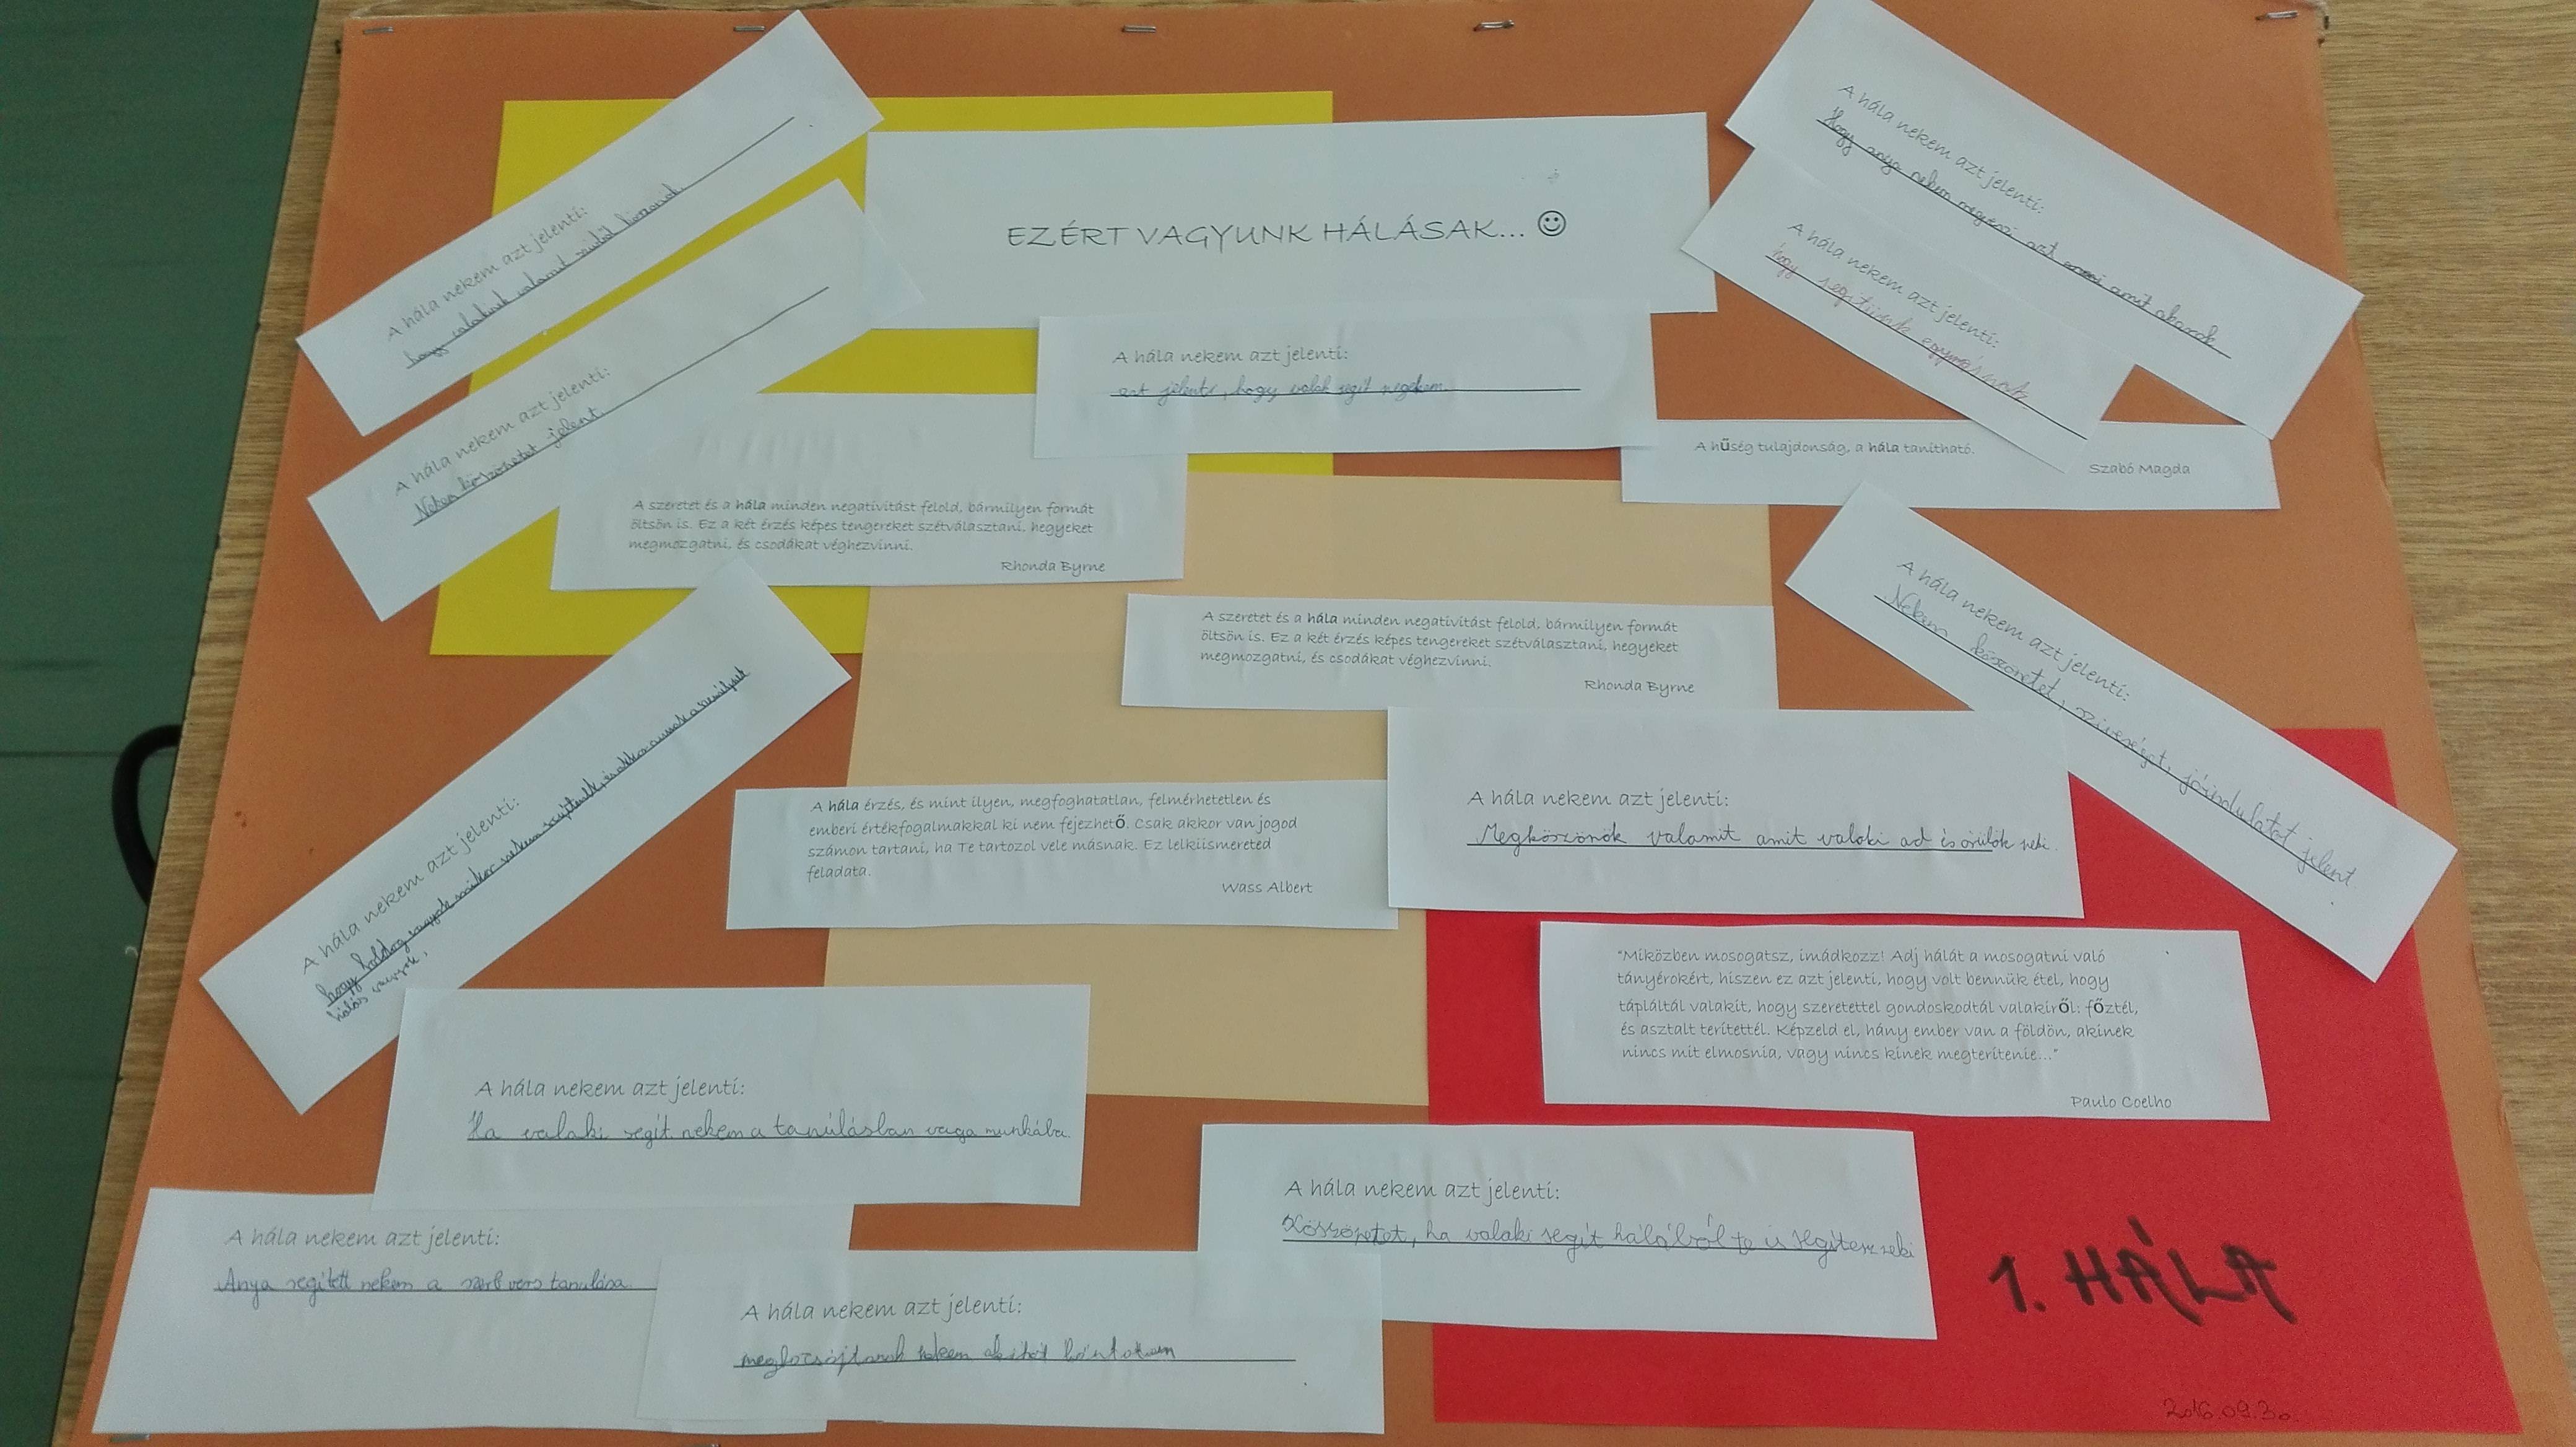 EZÉRT VAGYUNK HÁLÁSAK... ☺
A hála nekem azt jelenti:
hogy valakinek valamit
A hála nekem azt jelenti:
köszönetet jelent.
A hála nekem azt jelenti:
hogy anya nekem azt amit akarok
A hála nekem azt jelenti:
hogy segítünk egymásnak
A hála nekem azt jelenti:
ezt jelenti, hogy segit
A hűség tulajdonság, a hála tanítható.
Szabó Magda
A szeretet és a hála minden negativitást felold, bármilyen formát
öltsön is. Ez a két érzés képes tengereket szétválasztani, hegyeket
megmozgatni, és csodákat véghezvinni.
Rhonda Byrne
A szeretet és a hála minden negativitást felold, bármilyen formát
öltsön is. Ez a két érzés képes tengereket szétválasztani, hegyeket
megmozgatni, és csodákat véghezvinni.
Rhonda Byrne
A hála nekem azt jelenti:
Nekem köszönetet, szivességet, jóindulatot jelent.
A hála nekem azt jelenti:
hogy boldog vagyok mikor nekem segítenek, és akkor annak a személynek
hálás vagyok.
A hála érzés, és mint ilyen, megfoghatatlan, felmérhetetlen és
emberi értékfogalmakkal ki nem fejezhető. Csak akkor van jogod
számon tartani, ha Te tartozol vele másnak. Ez lelkiismereted
feladata.
Wass Albert
A hála nekem azt jelenti:
Megköszönök valamit amit valaki ad és örülök neki.
"Miközben mosogatsz, imádkozz! Adj hálát a mosogatni való
tányérokért, hiszen ez azt jelenti, hogy volt bennük étel, hogy
tápláltál valakit, hogy szeretettel gondoskodtál valakiről: főztél,
és asztalt terítettél. Képzeld el, hány ember van a földön, akinek
nincs mit elmosnia, vagy nincs kinek megterítenie..."
Paulo Coelho
A hála nekem azt jelenti:
Ha valaki segit nekem a tanulásban vagy a munkába.
A hála nekem azt jelenti:
Köszönetet, ha valaki segít hálából te is segítesz neki
A hála nekem azt jelenti:
Anya segített nekem a szerb vers tanulása
A hála nekem azt jelenti:
nekem akiket bántottam
1. HÁLA
2016.09.30.